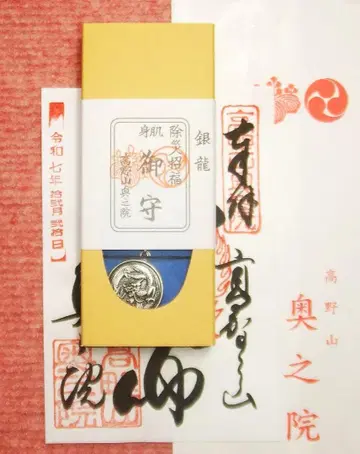 銀龍
除災招福
肌身
御守
高野山奥之院
奉拝
高野山
高野山
奥之院
令和七年拾弐月弐拾日